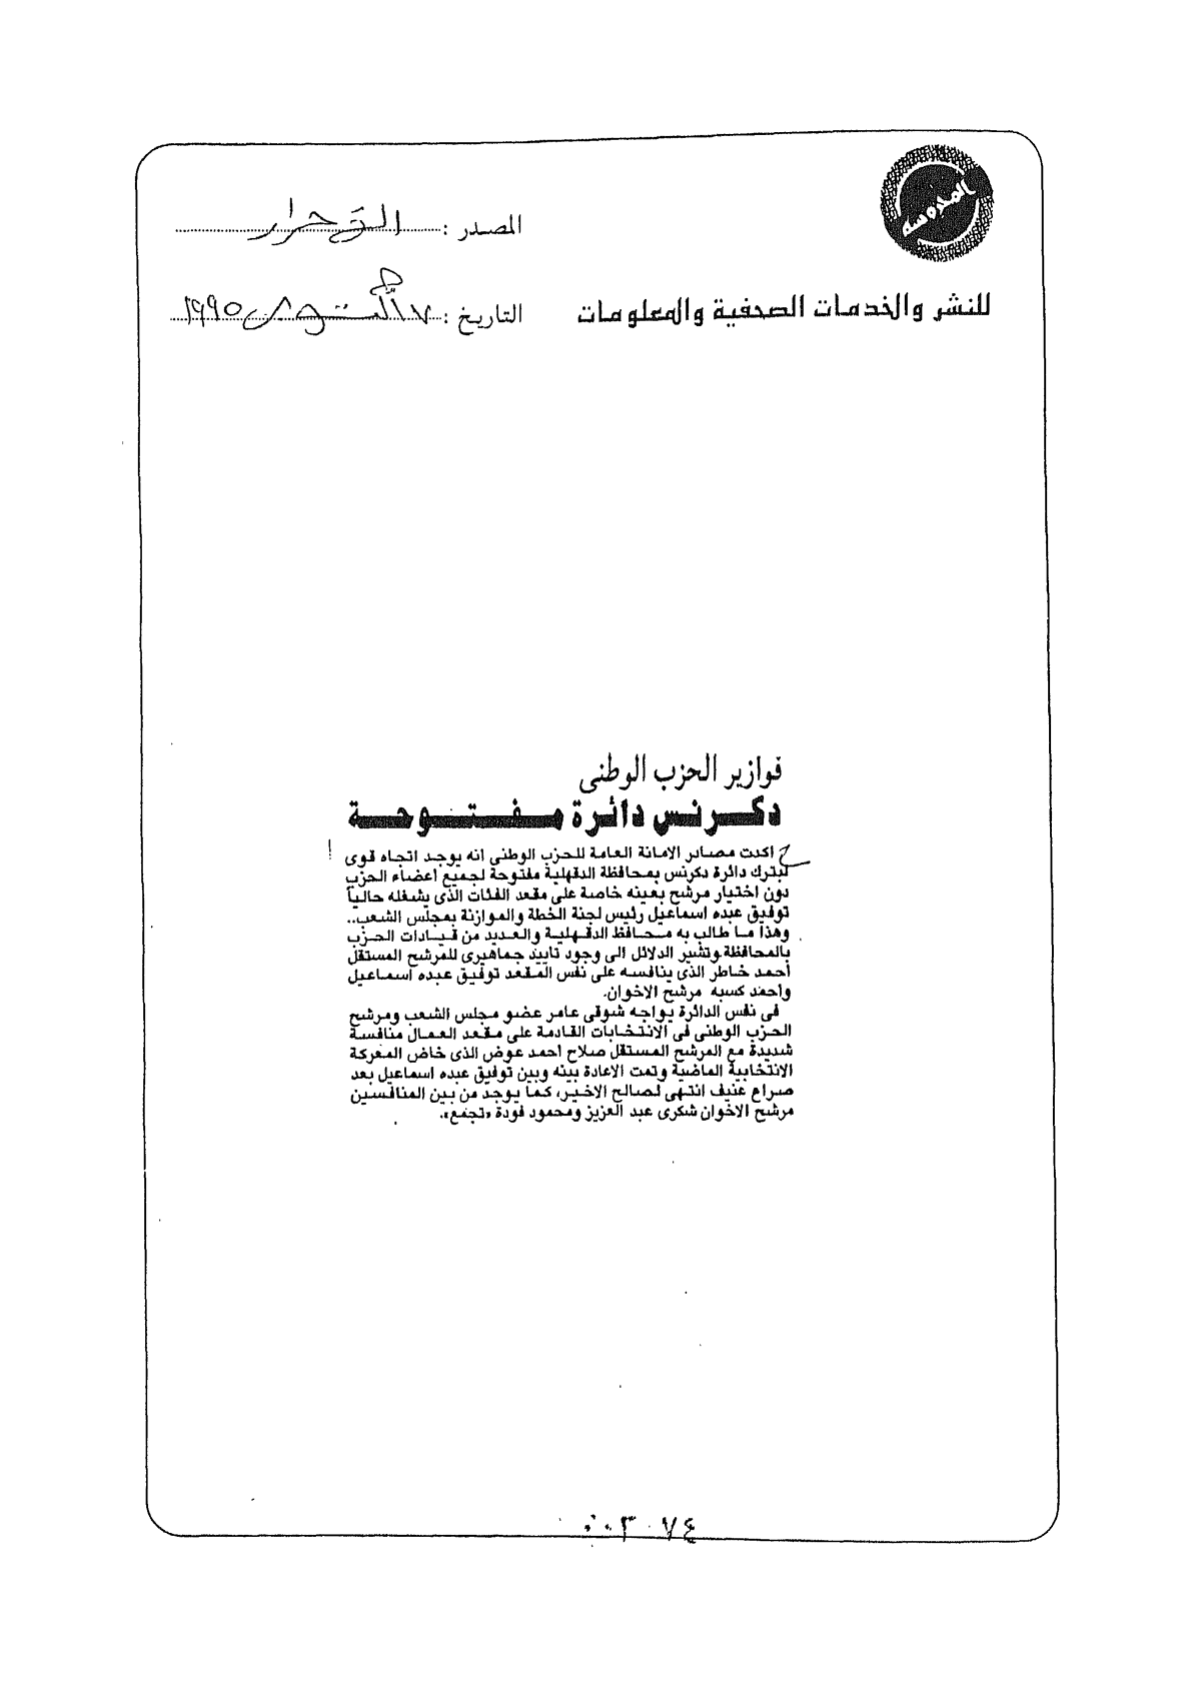 المصدر : الأحرار
للنشر والخدمات الصحفية والمعلومات
التاريخ : ١٧ أكتوبر ١٩٩٥
فوازير الحزب الوطنى
دكرنس دائرة مفتوحة
اكدت مصادر الامانة العامة للحزب الوطنى انه يوجد اتجاه قوى
لترك دائرة دكرنس بمحافظة الدقهلية مفتوحة لجميع اعضاء الحزب
دون اختيار مرشح بعينه خاصة على مقعد الفئات الذى يشغله حالياً
توفيق عبده اسماعيل رئيس لجنة الخطة والموازنة بمجلس الشعب..
وهذا ما طالب به محافظ الدقهلية والعديد من قيادات الحزب
بالمحافظة وتشير الدلائل الى وجود تاييد جماهيرى للمرشح المستقل
أحمد خاطر الذى ينافسه على نفس المقعد توفيق عبده اسماعيل
واحمد كسبه مرشح الاخوان.
فى نفس الدائرة يواجه شوقى عامر عضو مجلس الشعب ومرشح
الحزب الوطنى فى الانتخابات القادمة على مقعد العمال منافسة
شديدة مع المرشح المستقل صلاح احمد عوض الذى خاض المعركة
الانتخابية الماضية وتمت الاعادة بينه وبين توفيق عبده اسماعيل بعد
صراع عنيف انتهى لصالح الاخير، كما يوجد من بين المنافسين
مرشح الاخوان شكرى عبد العزيز ومحمود فودة «تجمع».